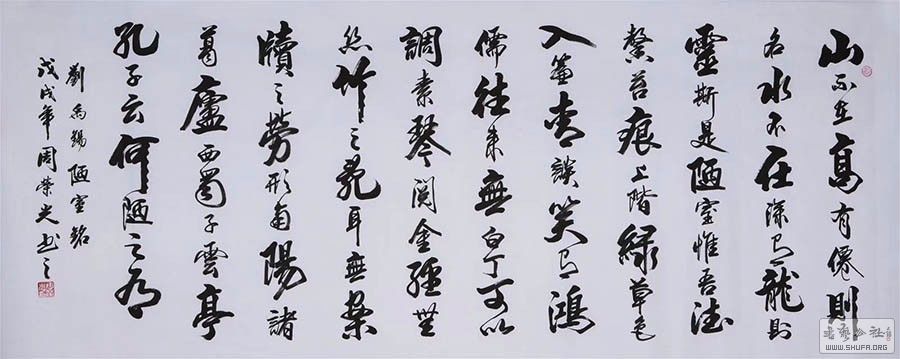 山不在高有僊則
名水不在深有龍則
靈斯是陋室惟吾德
馨苔痕上階綠草色
入簾青談笑有鴻
儒往来無白丁可以
調素琴閱金經無
絲竹之亂耳無案
牘之勞形南陽諸
葛廬西蜀子雲亭
孔子云何陋之有
劉禹錫陋室銘
戊戌年周榮光书之
WWW.SHUFA.ORG